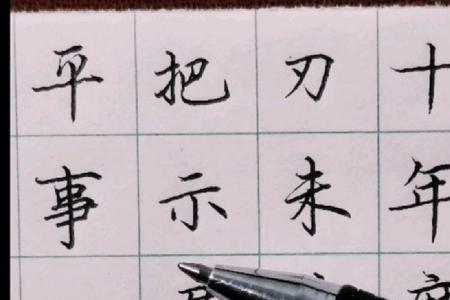 十年
刃未
把示
平事